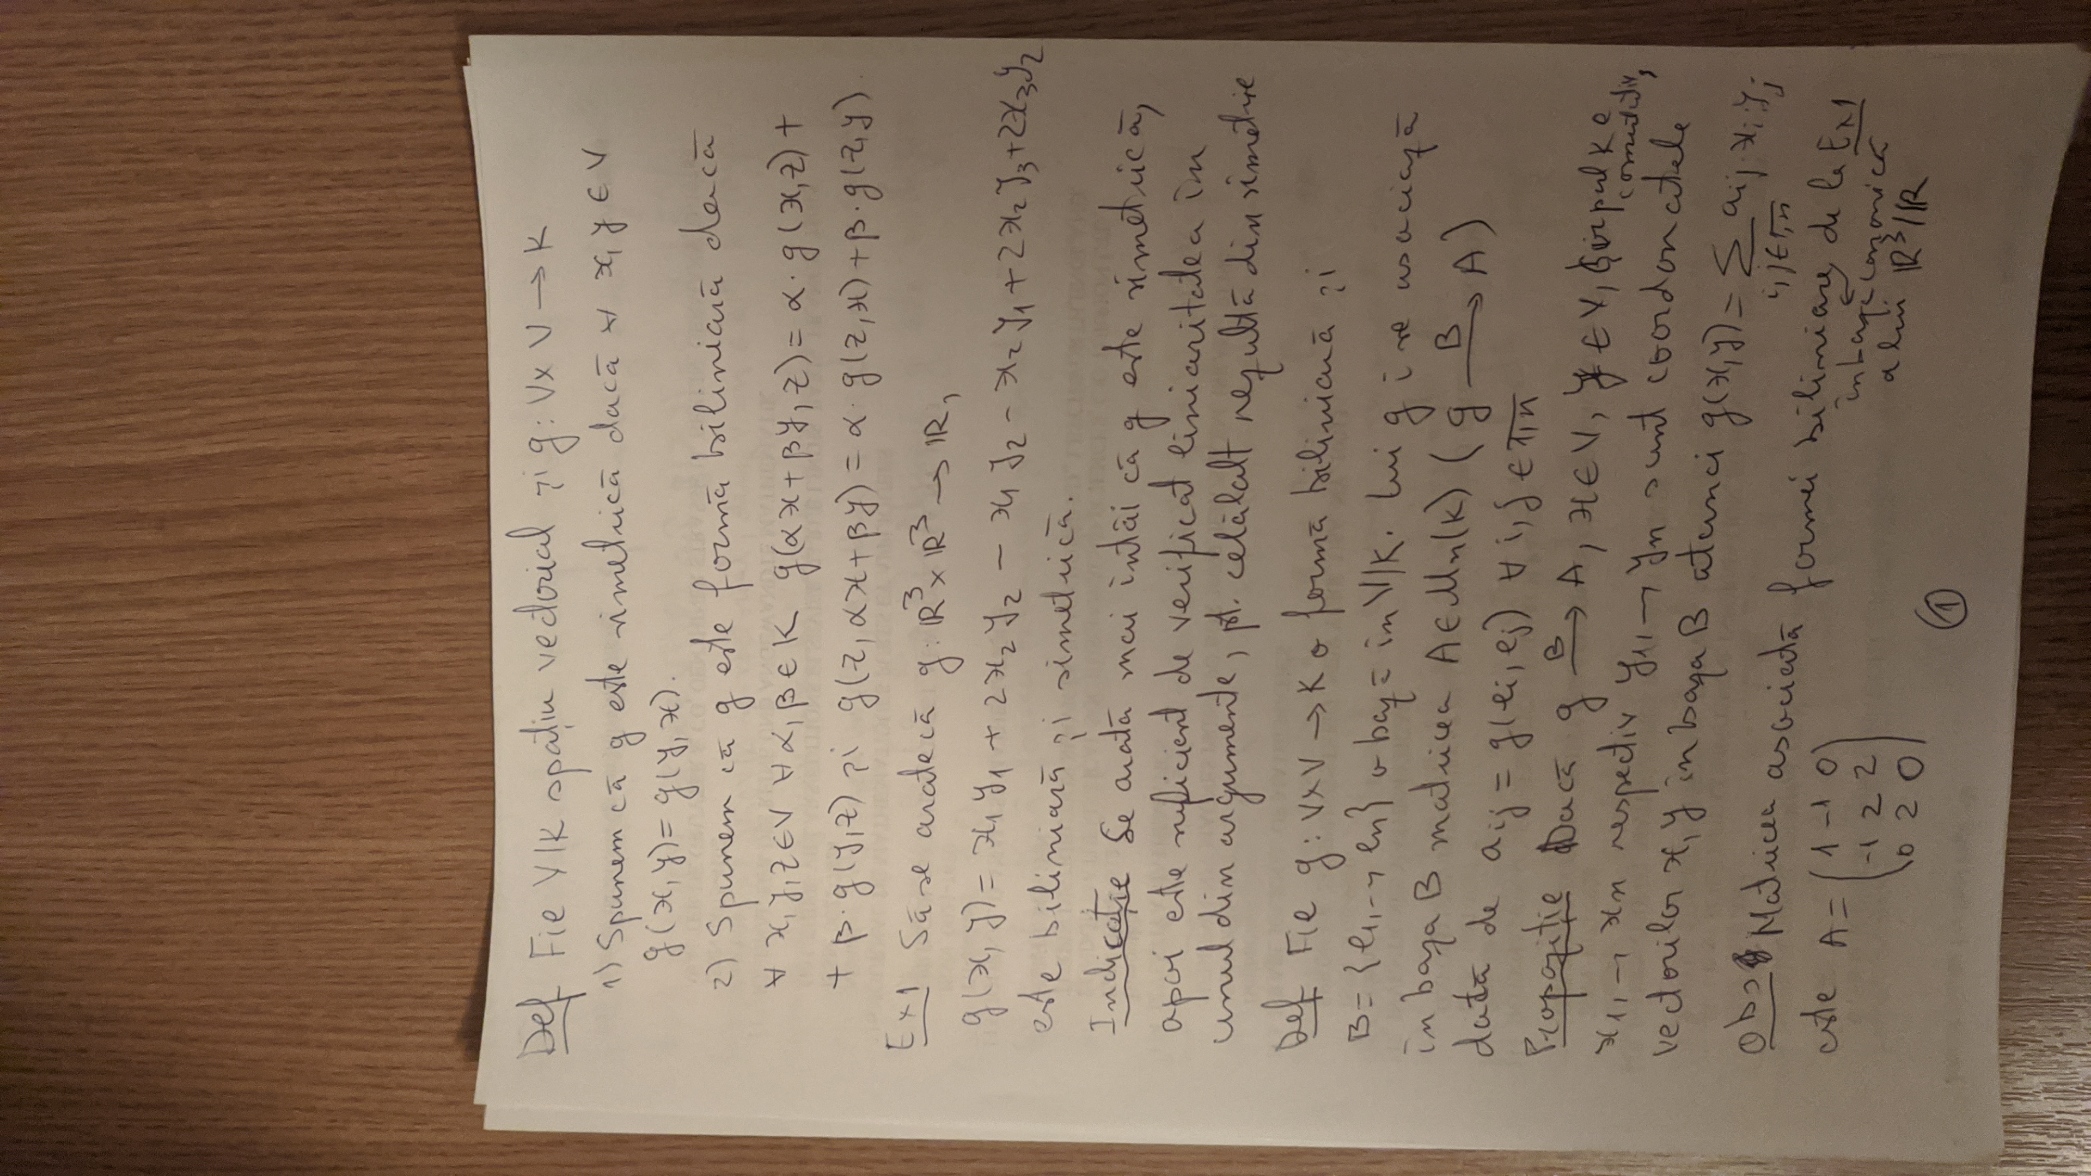 Def Fie V/K spațiu vectorial și g: V×V → K
1) Spunem că g este simetrică dacă ∀ x, y ∈ V
g(x, y) = g(y, x).
2) Spunem că g este formă biliniară dacă
∀ x, y, z ∈ V ∀ α, β ∈ K g(αx + βy, z) = α · g(x, z) +
+ β · g(y, z) și g(z, αx + βy) = α · g(z, x) + β · g(z, y).
Ex1 Să se arate că g: ℝ³ × ℝ³ → ℝ,
g(x, y) = x₁ y₁ + 2x₂ y₂ − x₁ y₂ − x₂ y₁ + 2x₂ y₃ + 2x₃ y₂
este biliniară și simetrică.
Indicație Se arată mai întâi că g este simetrică,
apoi este suficient de verificat liniaritatea în
unul din argumente, pt. celălalt rezultă din simetrie
Def Fie g: V×V → K o formă biliniară și
B = {e₁, ..., eₙ} o bază în V/K. Lui g i se asociază
în baza B matricea A ∈ Mₙ(K) (g —B→ A)
dată de aᵢⱼ = g(eᵢ, eⱼ) ∀ i, j ∈ 1,n
Propoziție Dacă g —B→ A, x ∈ V, y ∈ V, corpul K e
comutativ,
x₁, ..., xₙ respectiv y₁, ..., yₙ sunt coordonatele
vectorilor x, y în baza B atunci g(x, y) = Σ aᵢⱼ · xᵢ yⱼ
i, j ∈ 1,n
Obs Matricea asociată formei biliniare, de la Ex1
în baza canonică
a lui ℝ³/ℝ
este A = (1 −1 0
−1 2 2
0 2 0)
1